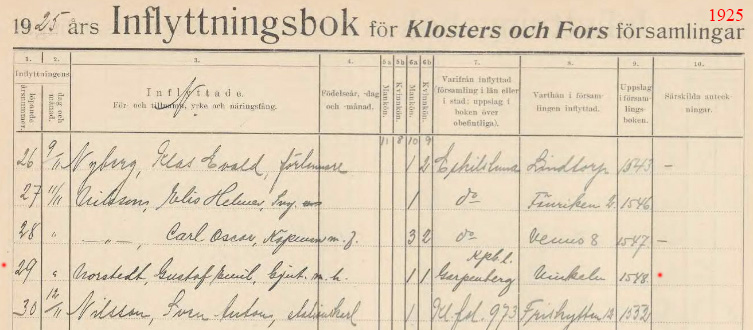 1925
1925 års Inflyttningsbok för Klosters och Fors församlingar
1. 2. 3. 4. 5a 5b 6a 6b 7. 8. 9. 10.
Inflyttningens
löpande årsnummer.
dag och månad.
Inflyttade.
För- och tillnamn, yrke och näringsfång.
Födelseår, -dag och -månad.
Mankön.
Kvinnkön.
Mankön.
Kvinnkön.
Varifrån inflyttad (församling i län eller i stad; uppslag i boken över obefintliga).
Varthän i församlingen inflyttad.
Uppslag i församlingsboken.
Särskilda anteckningar.
11 8 10 9
26 9/11 Nyberg, Klas Evald, förlunnare 1 2 Eskilstuna Lindtorp 1543 –
27 11/11 Nilsson, Elis Helmer, 1 do Fänriken 2 1546
28 " –"–, Carl Oscar, m. f. 3 2 do Venus 8 1547 –
29 " Norstedt, Gustaf Emil, Gjut. m. h. 1 1 Garpenberg Vinkeln 1548
30 12/11 Nilsson, Sven Anton, 1 Kl. fol. 973 1532